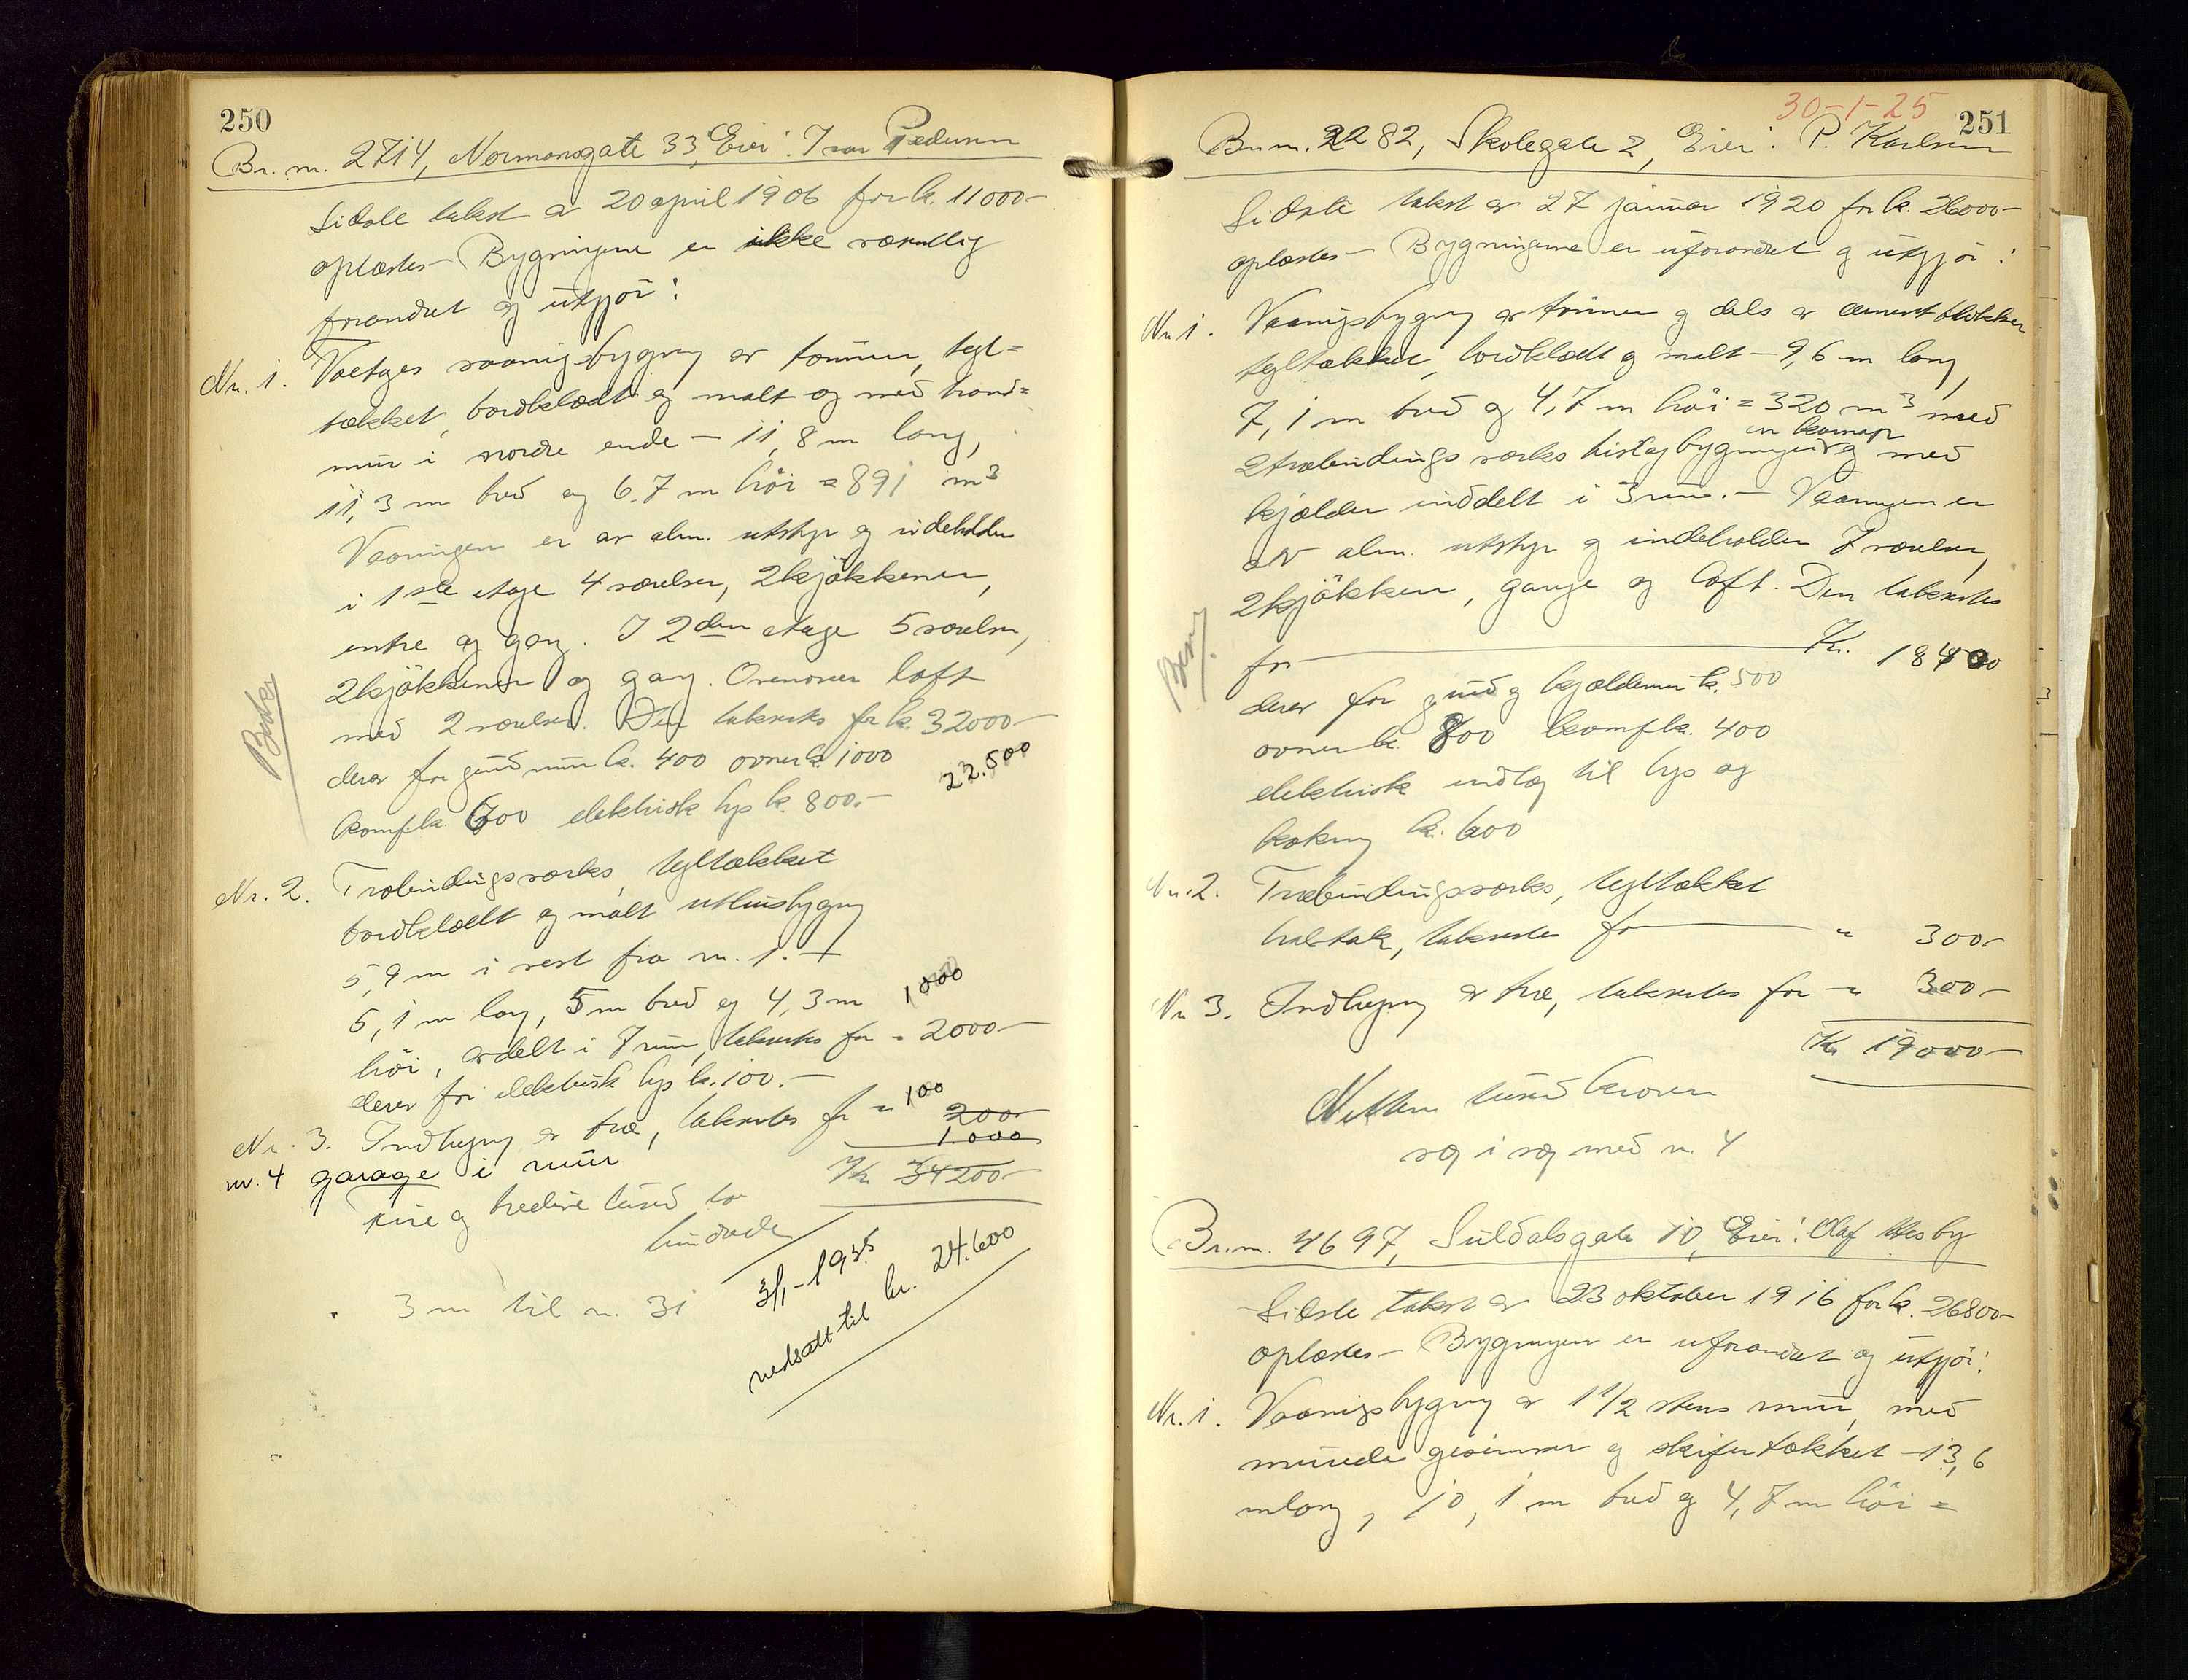 250
Br. nr. 2714, Normansgate 33, Eier: Ivar Pedersen
Sidste takst av 20 april 1906 for kr. 11000-
oplæstes - Bygningene er ikke væsentlig
forandret og utgjør:
Nr. 1. Toetages vaaningsbygning av tømmer, tegl=
tækket, bordklædt og malt og med brand=
mur i nordre ende - 11,8 m lang,
11,3 m bred og 6,7 m høi = 891 m3
Vaaningen er av alm. utstyr og indeholder
i 1ste etage 4 værelser, 2 kjøkkener,
entre og gang. I 2den etage 5 værelser,
2 kjøkkener og gang. Ovenover loft
med 2 værelser. Den takseres for kr. 32000-
derav for grundmur kr. 400 ovner kr. 1000
22.500
komf. kr. 600 elektrisk lys kr. 800.-
Nr. 2. Træbindingsværks, tegltækket
bordklædt og malt uthusbygning
5,9 m i vest fra nr. 1. -
5,1 m lang, 5 m bred og 4,3 m
1000
høi, avdelt i 7 rum, takseres for " 2000-
derav for elektrisk lys kr. 100.-
Nr. 3. Indhegning av træ, takseres for " 100 200-
nr. 4 garage i mur 1.000
Kr. 34200-
fire og tredive tusend to
hundrede
3 m til nr. 31
3/1-1935
nedsatt til kr. 24.600
30-1-25
251
Br. nr. 2282, Skolegate 2, Eier: P. Karlsen
Sidste takst av 27 januar 1920 for kr. 26000-
oplæstes - Bygningerne er uforandret og utgjør:
Nr. 1. Vaaningsbygning av tømmer og dels av cementblokker
tegltækket, bordklædt og malt - 9,6 m lang,
7,1 m bred og 4,7 m høi = 320 m3 med
en kvimap
2 træbindingsværks bislagbygninger og med
kjælder inddelt i 3 rum. - Vaaningen er
av alm. utstyr og indeholder 7 værelser,
2 kjøkken, gange og loft. Den takseres
for Kr. 18400
derav for grund og kjældermur kr. 500
ovner kr. 800 komf. kr. 400
elektrisk indlæg til lys og
kokning kr. 600
Nr. 2. Træbindingsværks, tegltækket
halvtak, takseres for " 300-
Nr. 3. Indhegning av træ, takseres for " 300-
Kr. 19000-
Nitten tusend kroner
væg i væg med nr. 4
Br. nr. 4697, Suldalsgate 10, Eier: Olaf Hesby
Sidste takst av 23 oktober 1916 for kr. 26800-
oplæstes - Bygningen er uforandret og utgjør:
Nr. 1. Vaaningsbygning av 1 1/2 stens mur, med
murede gesimser og skifertækket - 13,6
m lang, 10,1 m bred og 4,7 m høi =